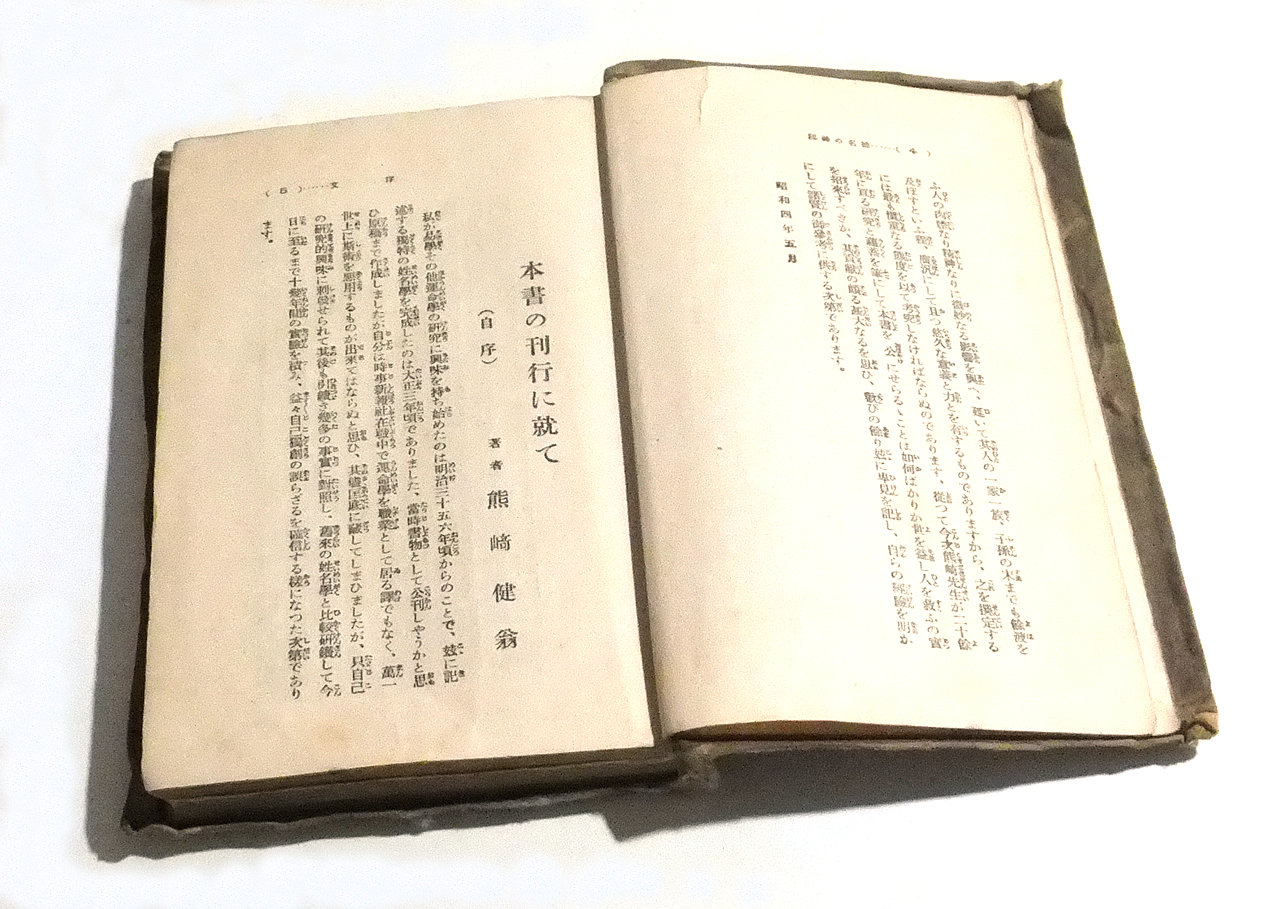 秘神の名姓……( 4 )
ふ人の肉體なり精神なりに微妙なる影響を與へ、延いて其人の一家一族、子孫の末までも餘波を
及ぼすといふ程、廣汎にして且つ悠久な意義と力とを有するものでありますから、之を撰定する
には最も愼重なる態度を以て考究しなければならぬのであります、從つて今次熊﨑先生が二十餘
年に亘る研究と蘊蓄を筆にして本書を公にせらるゝことは如何ばかりか世を益し人を救ふの實
を招來すべきか、其貢獻の頗る甚大なるを思ひ、歡びの餘り玆に卑見を記し、自らの經驗を明か
にして諸賢の御參考に供する次第であります。
昭和四年五月
( 5 )……文 序
本書の刊行に就て
(自序)
著者 熊﨑健翁
私が易學その他運命學の研究に興味を持ち始めたのは明治三十五六年頃からのことで、玆に記
述する獨特の姓名學を完成したのは大正三年頃でありました、當時書物として公刊しやうかと思
ひ原稿まで作成しましたが自分は時事新報社在職中で運命學を職業として居る譯でもなく、萬一
世上に斯術を惡用するものが出來てはならぬと思ひ、其儘匡底に藏してしまひましたが、只自己
の研究的興味に刺戟せられて其後も引續き幾多の事實に對照し、舊來の姓名學と比較研鑽して今
日に至るまで十幾年間の實驗を積み、益々自己獨創の誤らざるを確信する樣になつた次第であり
ます。